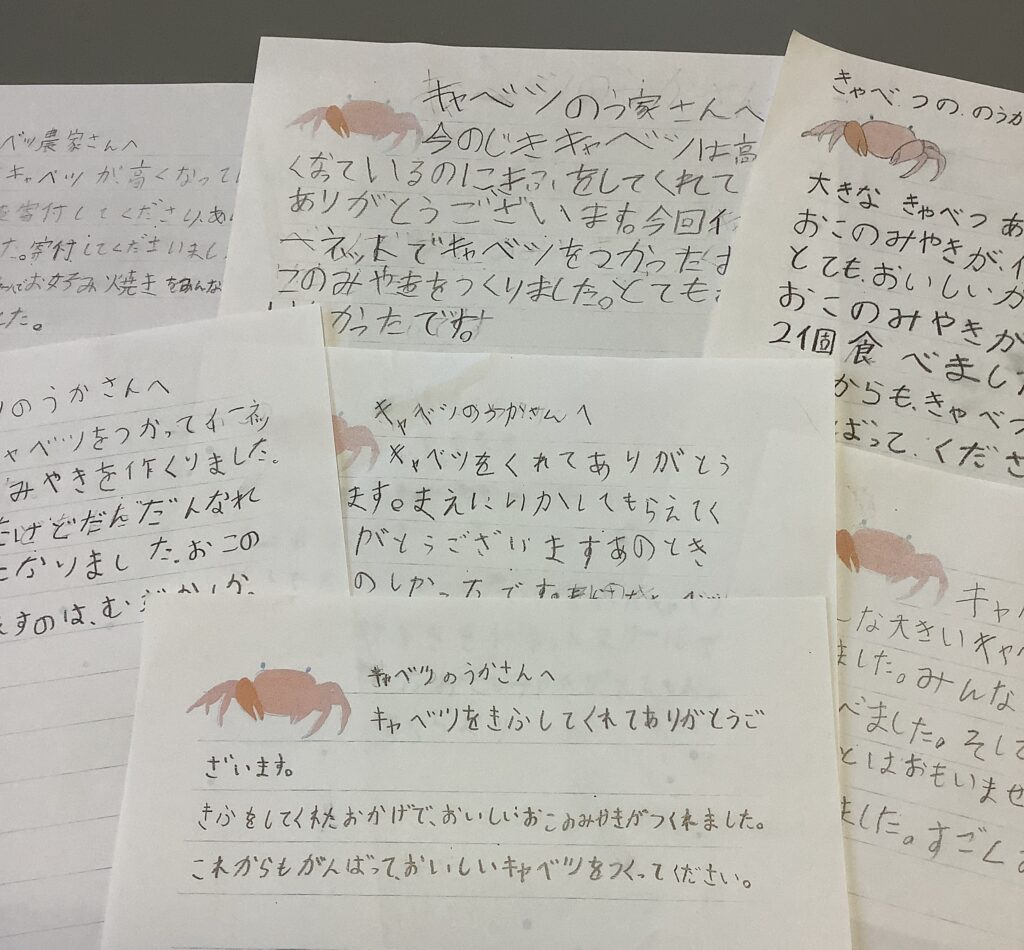 ベツ農家さんへ
キャベツが高くなって
寄付してくださり、あ
た。寄付してくださいまし
お好み焼きをみんな
した。
キャベツのう家さんへ
今のじきキャベツは高
くなっているのにきふをしてくれて
ありがとうございます。今回イ
ベネットでキャベツをつかったお
このみやきをつくりました。とても
かったです。
きゃべつの、のうか
大きなきゃべつあ
おこのみやきが、イ
とても、おいしいか
おこのみやきか
2個食べました
からも、きゃべつ
ばって、くださ
のうかさんへ
ャベツをつかってイーネッ
みやきを作くりました。
たけどだんだんなれ
になりました。おこの
すのは、む
キャベツのうかさんへ
キャベツをくれてありがとう
ます。まえにりかしてもらえてく
がとうございますあのとき
のしかったです。
キャベツのうかさんへ
キャベツをきふしてくれてありがとうご
ざいます。
きふをしてくれたおかげで、おいしいおこのみやきがつくれました。
これからもがんばって、おいしいキャベツをつくってください。
キャ
な大きいキャベ
ました。みんな
べました。そして
とはおもいませ
ました。すごく